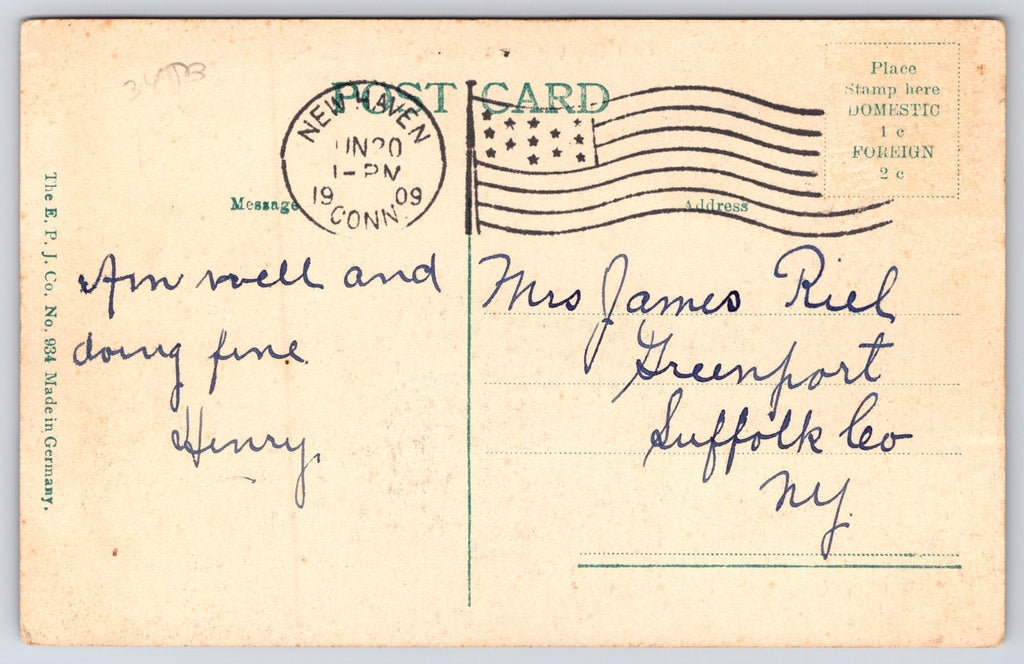 POST CARD
NEW HAVEN
JUN 20
1-PM
1909
CONN.
Place
Stamp here
DOMESTIC
1 c
FOREIGN
2 c
Message
Address
The E. P. J. Co. No. 934 Made in Germany.
Am well and
doing fine
Henry.
Mrs James Riel
Greenport
Suffolk Co
NY.